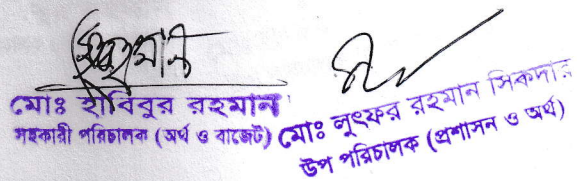 মোঃ হাবিবুর রহমান
সহকারী পরিচালক (অর্থ ও বাজেট)
মোঃ লুৎফর রহমান সিকদার
উপ পরিচালক (প্রশাসন ও অর্থ)